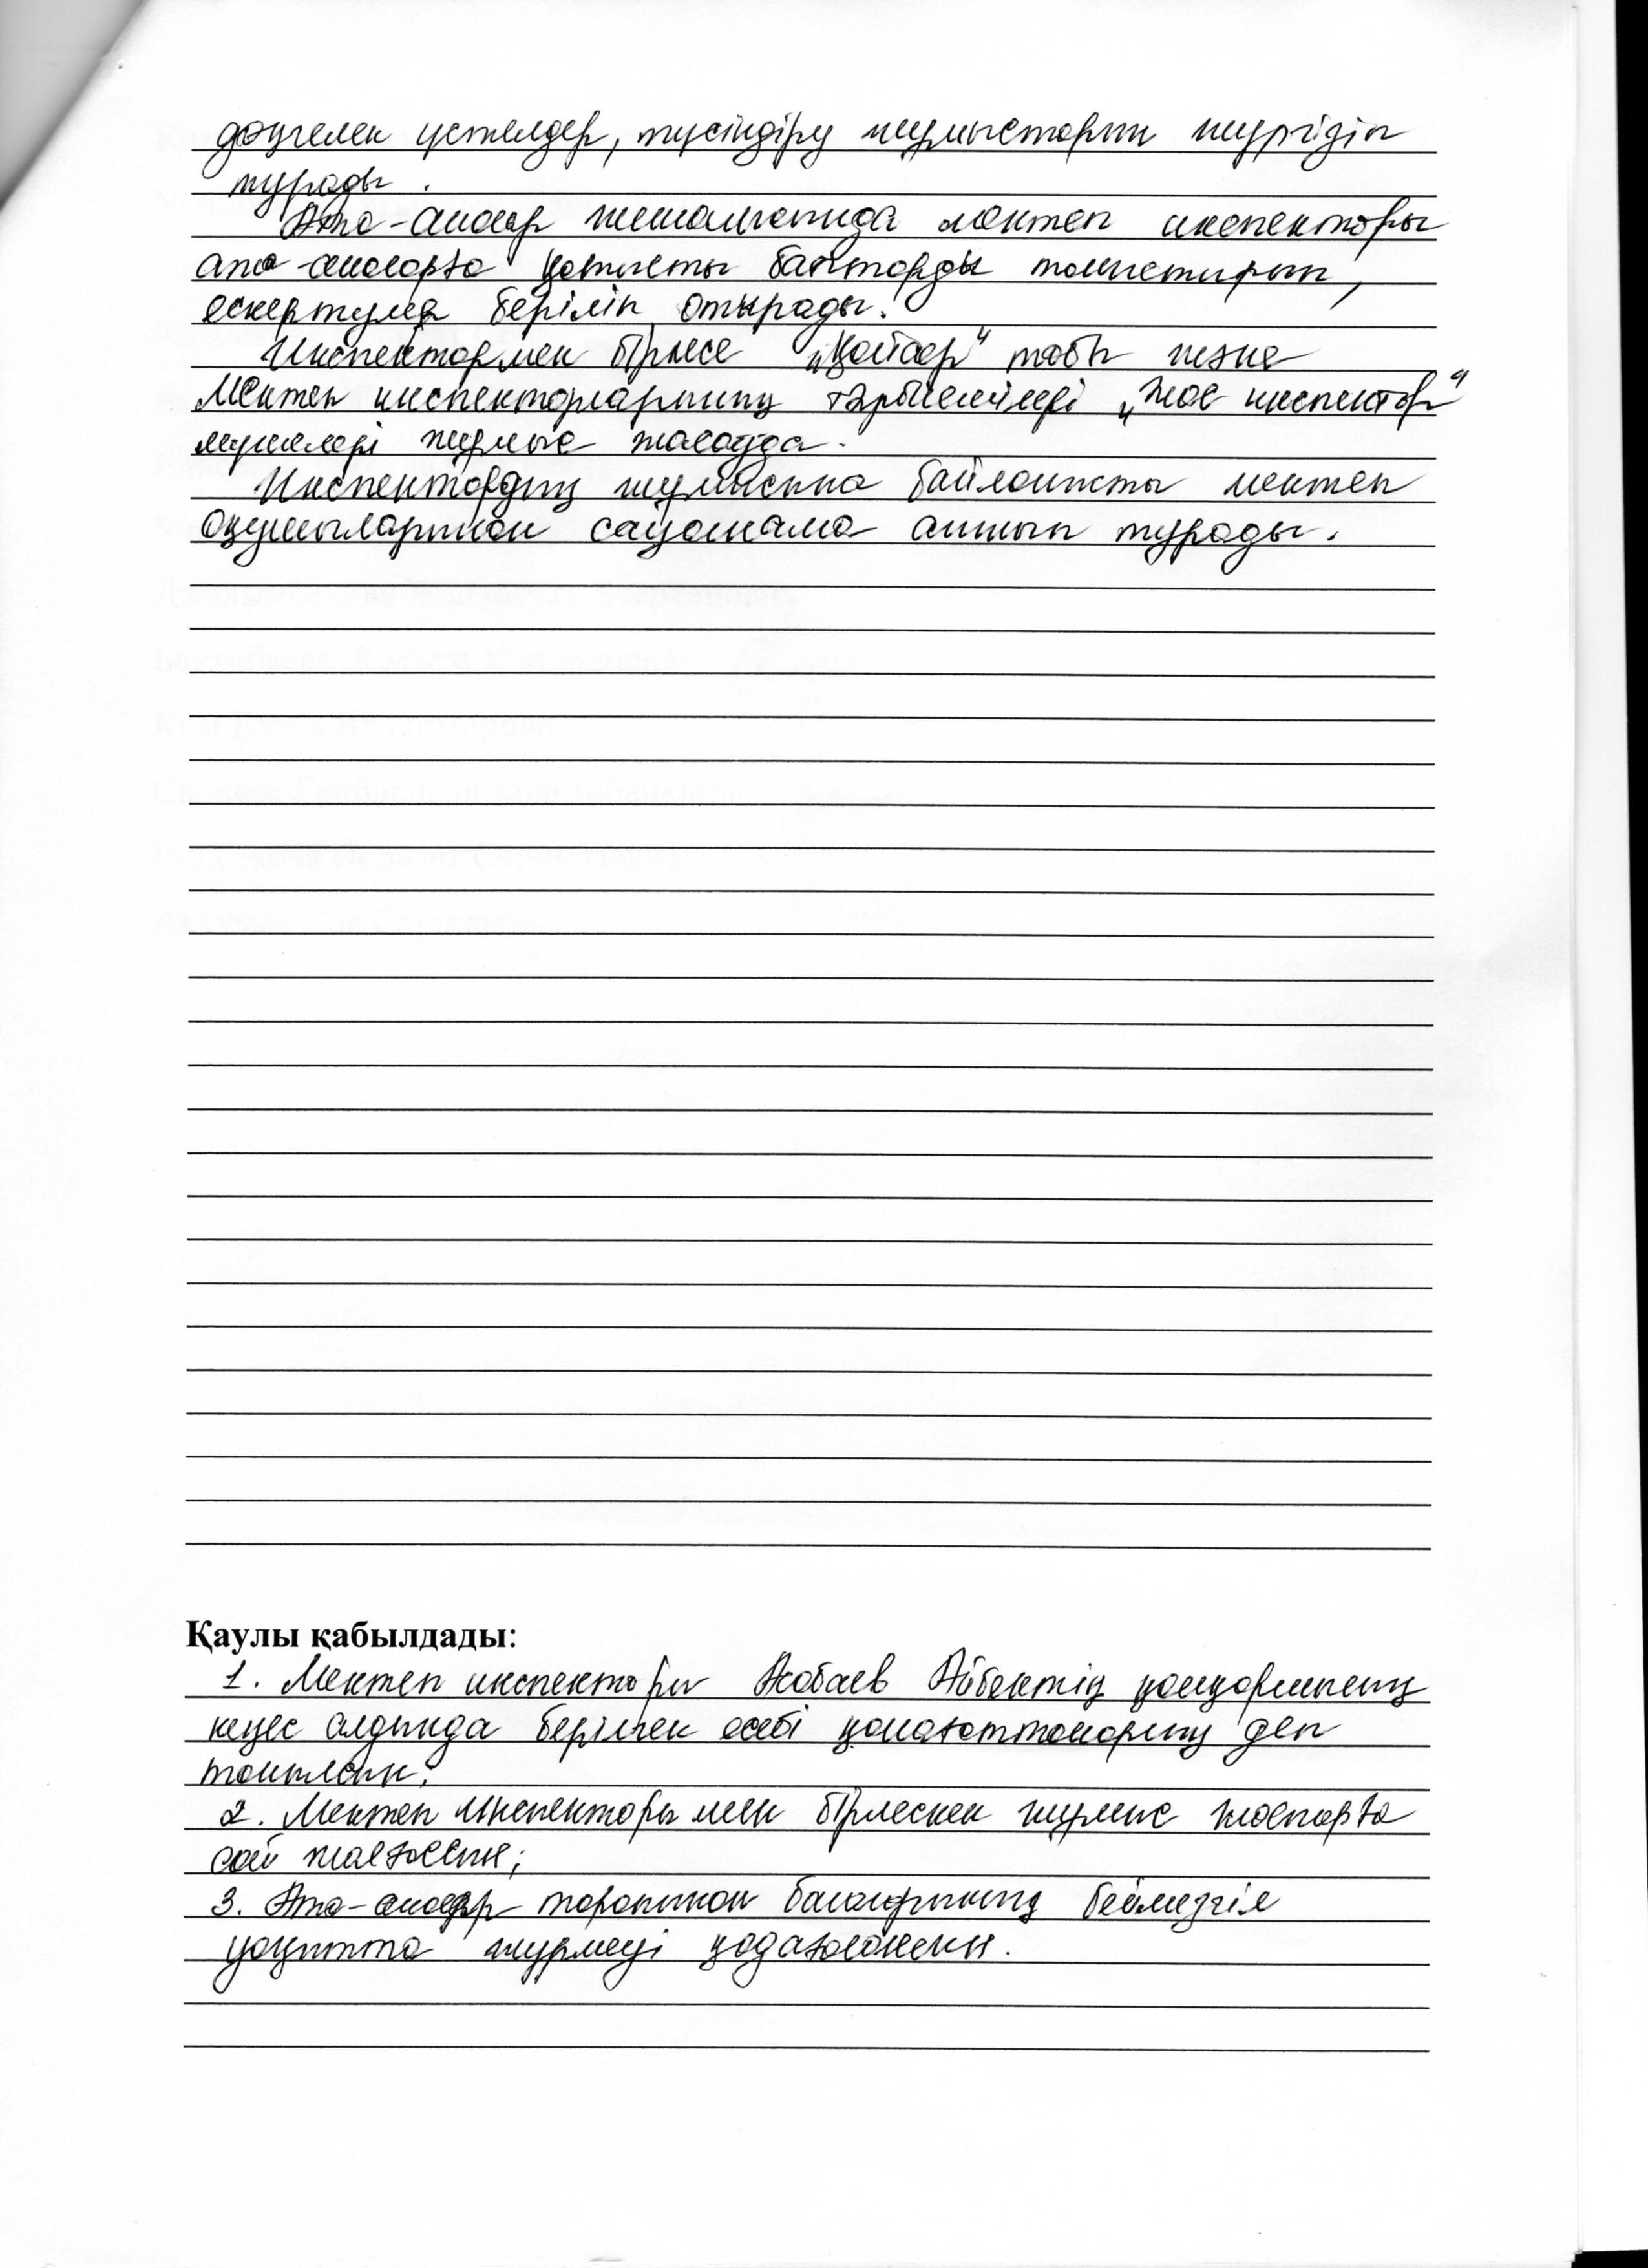 дөңгелек үстелдер, түсіндіру жұмыстарын жүргізіп
тұрады.
Ата-аналар жиналысында мектеп инспекторы
ата-аналарға қатысты баптарды таныстырып,
ескертулер беріліп отырады.
Инспектормен бірлесе "Қайсар" тобы және
Мектеп инспекторларының тәрбиеленушілері "Жас инспектор"
мүшелері жұмыс жасауда.
Инспектордың жұмысына байланысты мектеп
оқушыларынан сауалнама алынып тұрады.
Қаулы қабылдады:
1. Мектеп инспекторы Айбектің
кеңес алдында берілген есебі қанағаттанарлық деп
танылсын;
2. Мектеп инспекторы мен бірлескен жұмыс жоспарға
сай жалғассын;
3. Ата-аналар тарапынан балаларының беймезгіл
уақытта жүрмеуі қадағалансын.